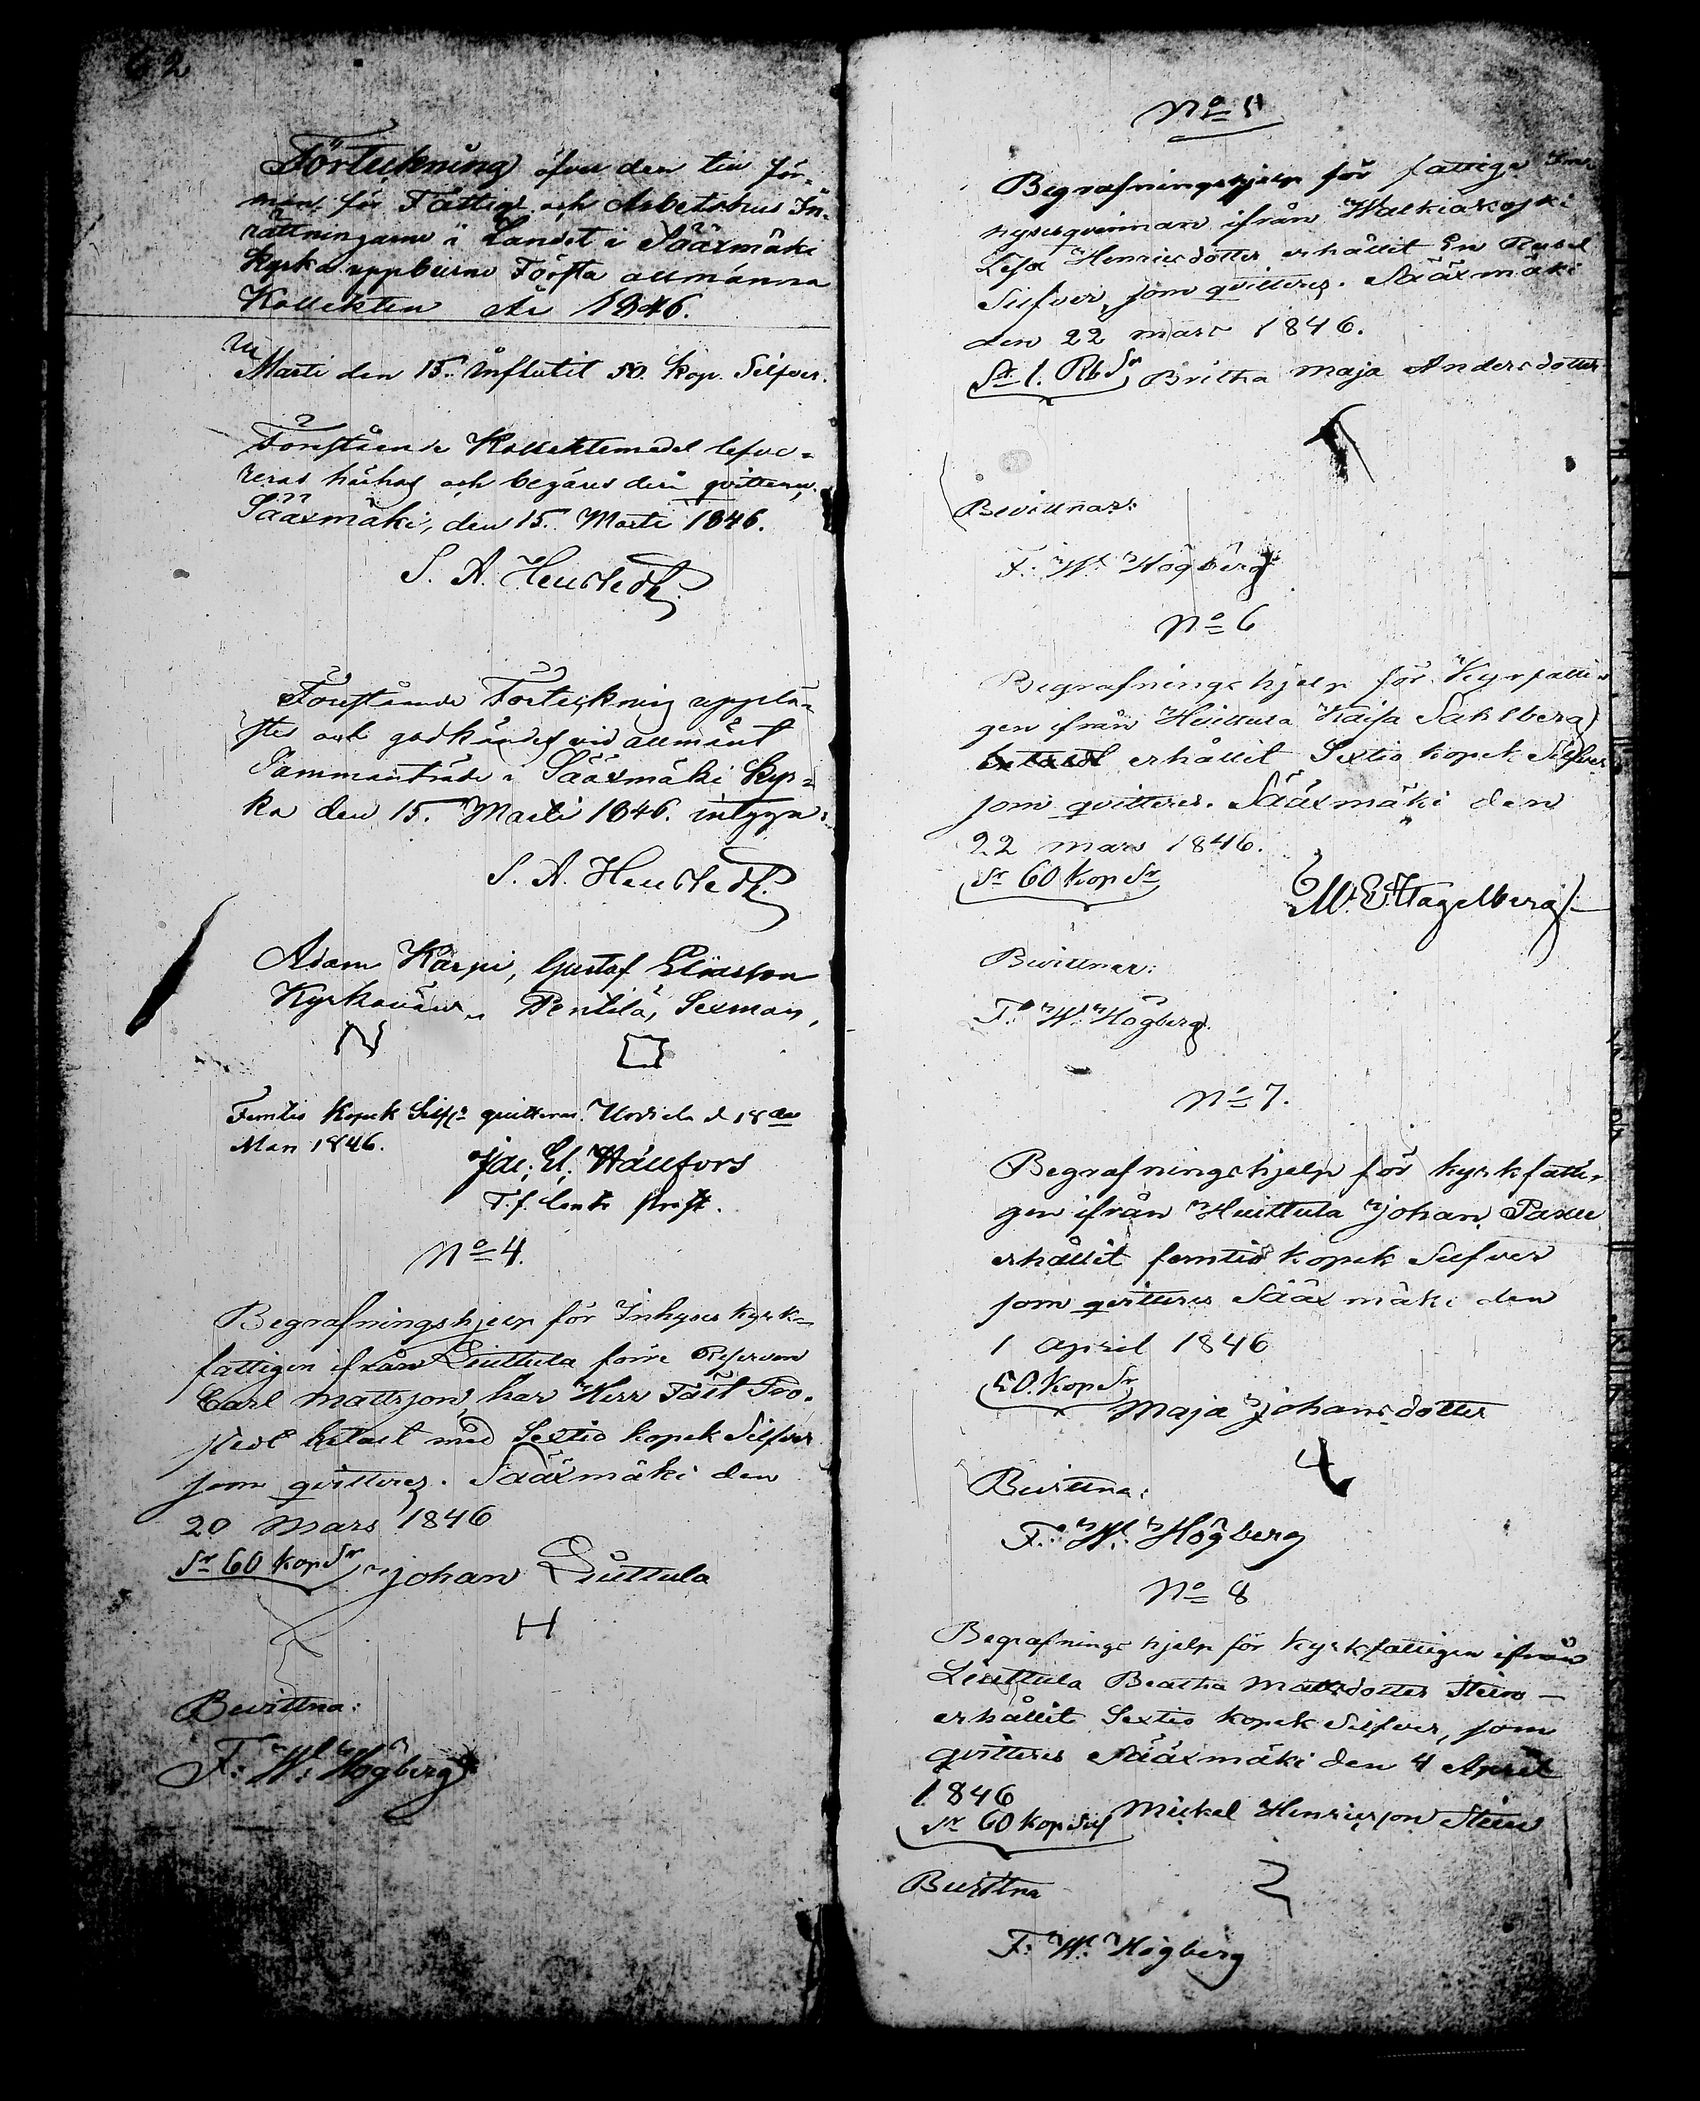 62
Förteckning öfver den till för-
mån för Fattig och Arbetshus In-
rättningarne i Landet i Sääxmäki
Kyrka uppburne Första allmänna
Kollekten År 1846.
Martii den 15. influtit 50. kop. Silfver.
Förestående Kollektemedel lefve-
reras härhos och begäres derå qvitterin.
Sääxmäki, den 15. Martii 1846.
S. A. Heurstedt
Förestående Förteckning upplä-
stes och godkändes vid allmänt
Sammanträde i Sääxmäki Kyr-
ka den 15. Martii 1846. intyga:
S. A. Heurstedt.
Adam Kärpi, Gustaf Eliasson
Kyrkovärd. Pentilä, Sexman,
N
Femtio Kopek Silfr qvitteras. Urdiala d 18de
Mars 1846.
Jac. El. Wallfors
T.f.
No 4.
Begrafningshjelp för Inhyses kyrk-
fattigen ifrån Liuttula förre Reserven
Carl Mattsson, har Herr Fält Pro-
sten betalt med Sextio kopek Silfver
som qvitteres. Sääxmäki den
20 Mars 1846
Sr 60 kop Sr Johan Liuttula
H
Bevittna:
F. W. Högberg
No 5
Begrafningshjelp för fattige In-
hysesqvinnan ifrån Walkiakoski
Lesa Henricsdotter erhållit En Rubel
Silfver, som qvitteres. Sääxmäki
den 22 mars 1846.
Sr 1. Rb Sr Britha Maja Andersdotter
Bevittnar:
F. W. Högberg
No 6
Begrafningshjelp för Kyrfatti-
gen ifrån Huittula Kaisa Sahlberg
erhållit Sextio kopek Silfver
som qvitteres. Sääxmäki den
22 mars 1846.
Sr 60 Kop Sr
M. E. Hagelberg
Bevittnar:
F. W. Högberg.
No 7.
Begrafningshjelp för kyrkfatti-
gen ifrån Huittula Johan
erhållit femtio kopek Silfver
som qvitteres Sääxmäki den
1 April 1846
50. Kop Sr
Maja Johansdotter
Bevittna:
F. W. Högberg
No 8
Begrafningshjelp för kyrkfattigen ifrån
Liuttula Beatha Mattsdotter Stein
erhållit Sextio kopek Silfver, som
qvitteres Sääxmäki den 4 April
1846
Sr 60 Kop Silf Mickel Henricsson Stein
Bevittna
F. W. Högberg